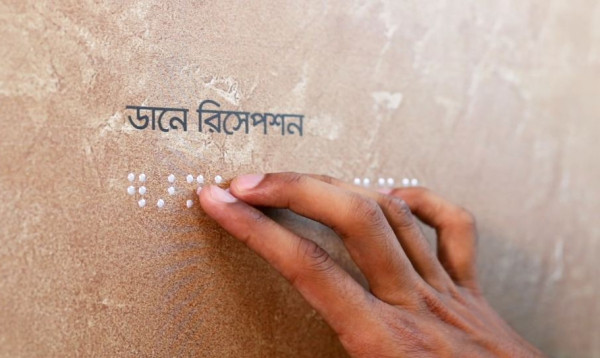 ডানে রিসেপশন